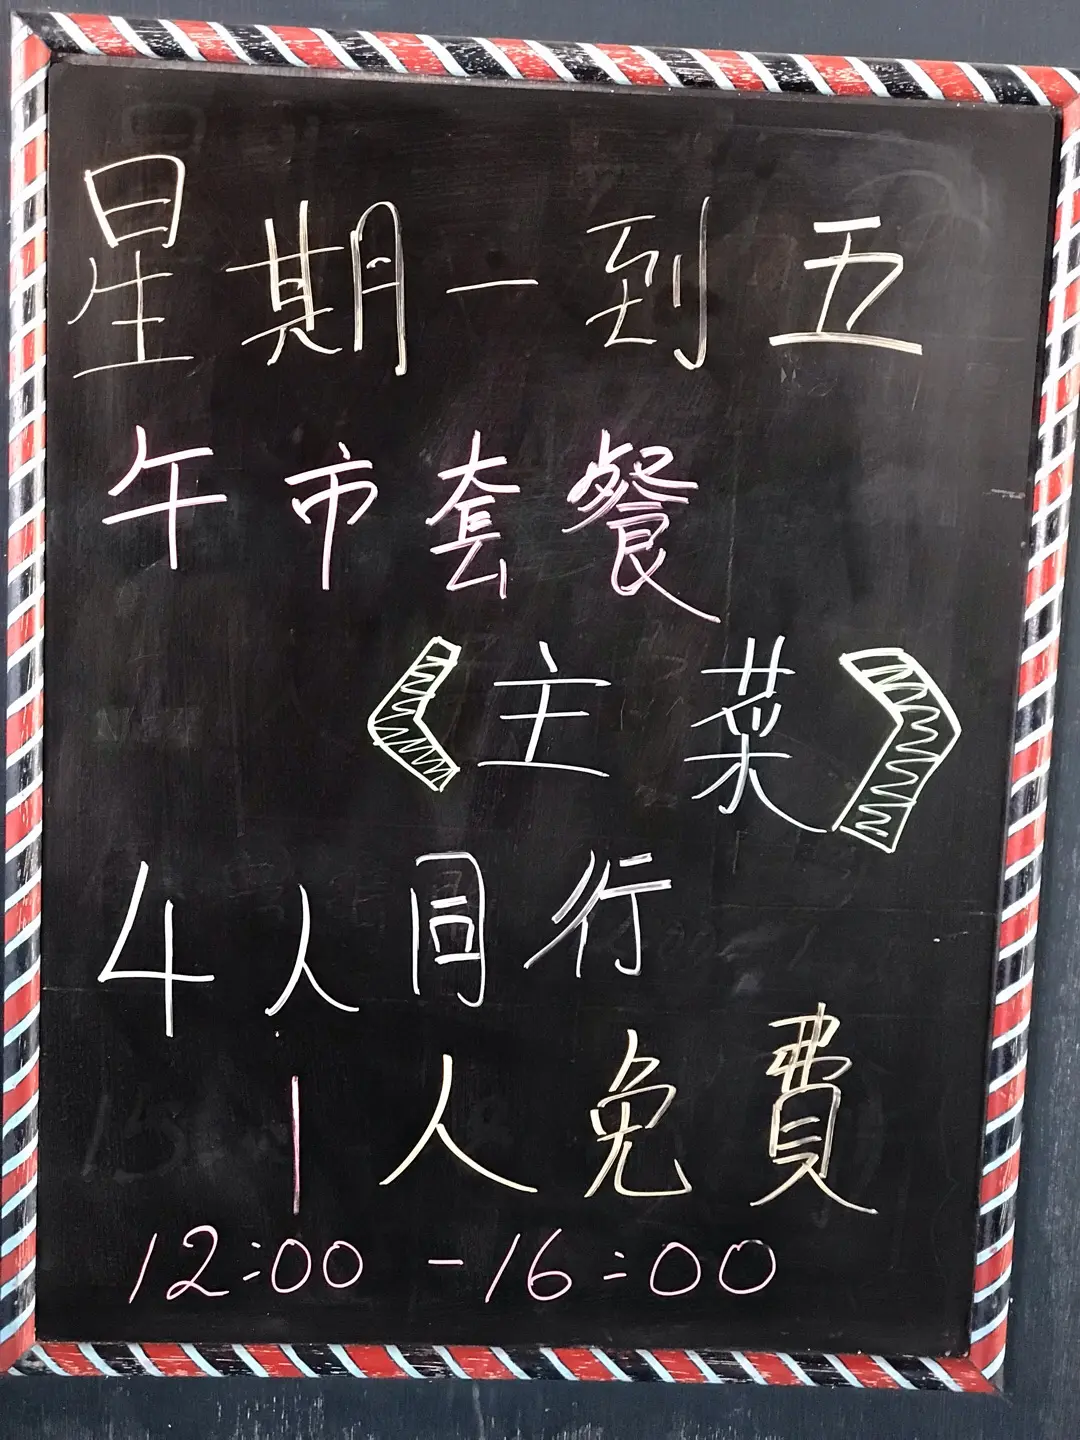 星期一到五
午市套餐
《主菜》
4人同行
1人免費
12:00-16:00